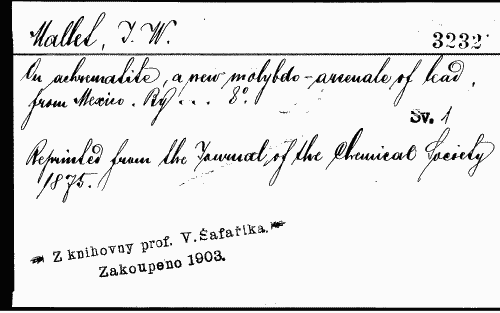 Mallet, J. W.
3232
On achrematite, a new molybdo-arsenate of lead,
from Mexico. By ... 8°.
Sv. 1
Reprinted from the Journal of the Chemical Society
1875.
Z knihovny prof. V. Šafaříka.
Zakoupeno 1903.